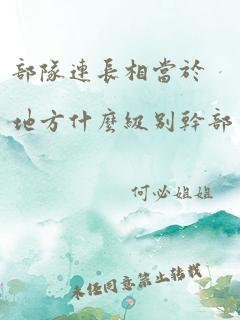 部隊連長相當於
地方什麼級別幹部
何必姐姐
未经同意禁止转载